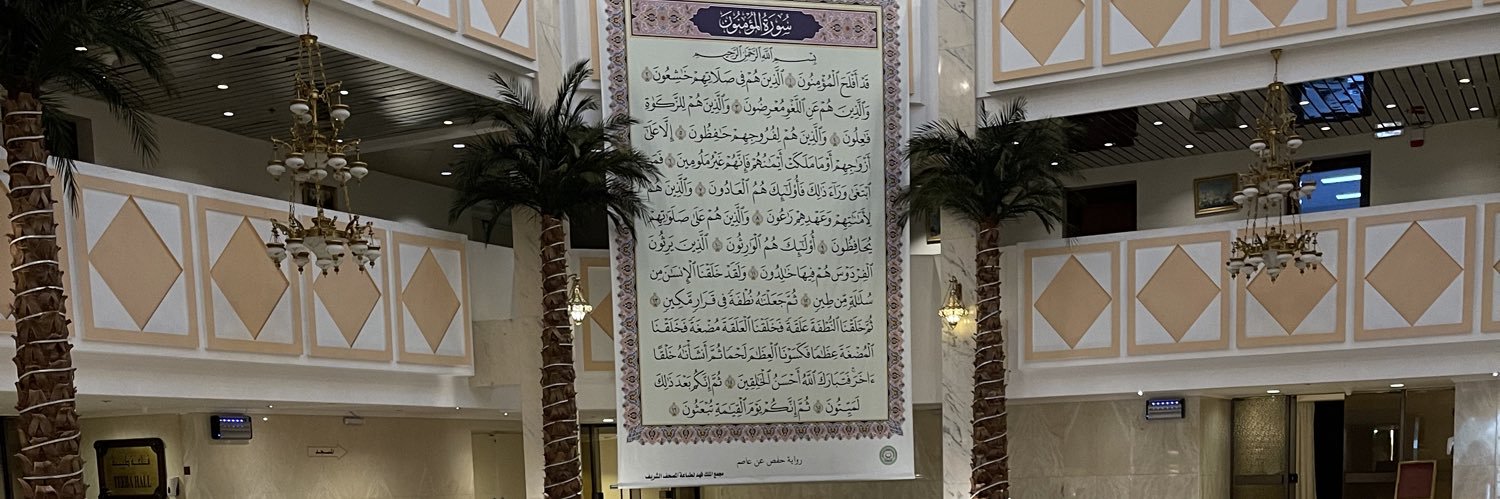 سُورَةُ المُؤْمِنُونَ
بِسْمِ ٱللَّهِ ٱلرَّحْمَٰنِ ٱلرَّحِيمِ
قَدْ أَفْلَحَ ٱلْمُؤْمِنُونَ ١ ٱلَّذِينَ هُمْ فِي صَلَاتِهِمْ خَٰشِعُونَ ٢
وَٱلَّذِينَ هُمْ عَنِ ٱللَّغْوِ مُعْرِضُونَ ٣ وَٱلَّذِينَ هُمْ لِلزَّكَوٰةِ
فَٰعِلُونَ ٤ وَٱلَّذِينَ هُمْ لِفُرُوجِهِمْ حَٰفِظُونَ ٥ إِلَّا عَلَىٰٓ
أَزْوَٰجِهِمْ أَوْ مَا مَلَكَتْ أَيْمَٰنُهُمْ فَإِنَّهُمْ غَيْرُ مَلُومِينَ ٦ فَمَنِ
ٱبْتَغَىٰ وَرَآءَ ذَٰلِكَ فَأُو۟لَٰٓئِكَ هُمُ ٱلْعَادُونَ ٧ وَٱلَّذِينَ هُمْ
لِأَمَٰنَٰتِهِمْ وَعَهْدِهِمْ رَٰعُونَ ٨ وَٱلَّذِينَ هُمْ عَلَىٰ صَلَوَٰتِهِمْ
يُحَافِظُونَ ٩ أُو۟لَٰٓئِكَ هُمُ ٱلْوَٰرِثُونَ ١٠ ٱلَّذِينَ يَرِثُونَ
ٱلْفِرْدَوْسَ هُمْ فِيهَا خَٰلِدُونَ ١١ وَلَقَدْ خَلَقْنَا ٱلْإِنسَٰنَ مِن
سُلَٰلَةٍ مِّن طِينٍ ١٢ ثُمَّ جَعَلْنَٰهُ نُطْفَةً فِي قَرَارٍ مَّكِينٍ ١٣
ثُمَّ خَلَقْنَا ٱلنُّطْفَةَ عَلَقَةً فَخَلَقْنَا ٱلْعَلَقَةَ مُضْغَةً فَخَلَقْنَا
ٱلْمُضْغَةَ عِظَٰمًا فَكَسَوْنَا ٱلْعِظَٰمَ لَحْمًا ثُمَّ أَنشَأْنَٰهُ خَلْقًا
ءَاخَرَ فَتَبَارَكَ ٱللَّهُ أَحْسَنُ ٱلْخَٰلِقِينَ ١٤ ثُمَّ إِنَّكُم بَعْدَ ذَٰلِكَ
لَمَيِّتُونَ ١٥ ثُمَّ إِنَّكُمْ يَوْمَ ٱلْقِيَٰمَةِ تُبْعَثُونَ ١٦
رواية حفص عن عاصم
مجمع الملك فهد لطباعة المصحف الشريف
المسجد
قاعة طيبة
TEEBA HALL